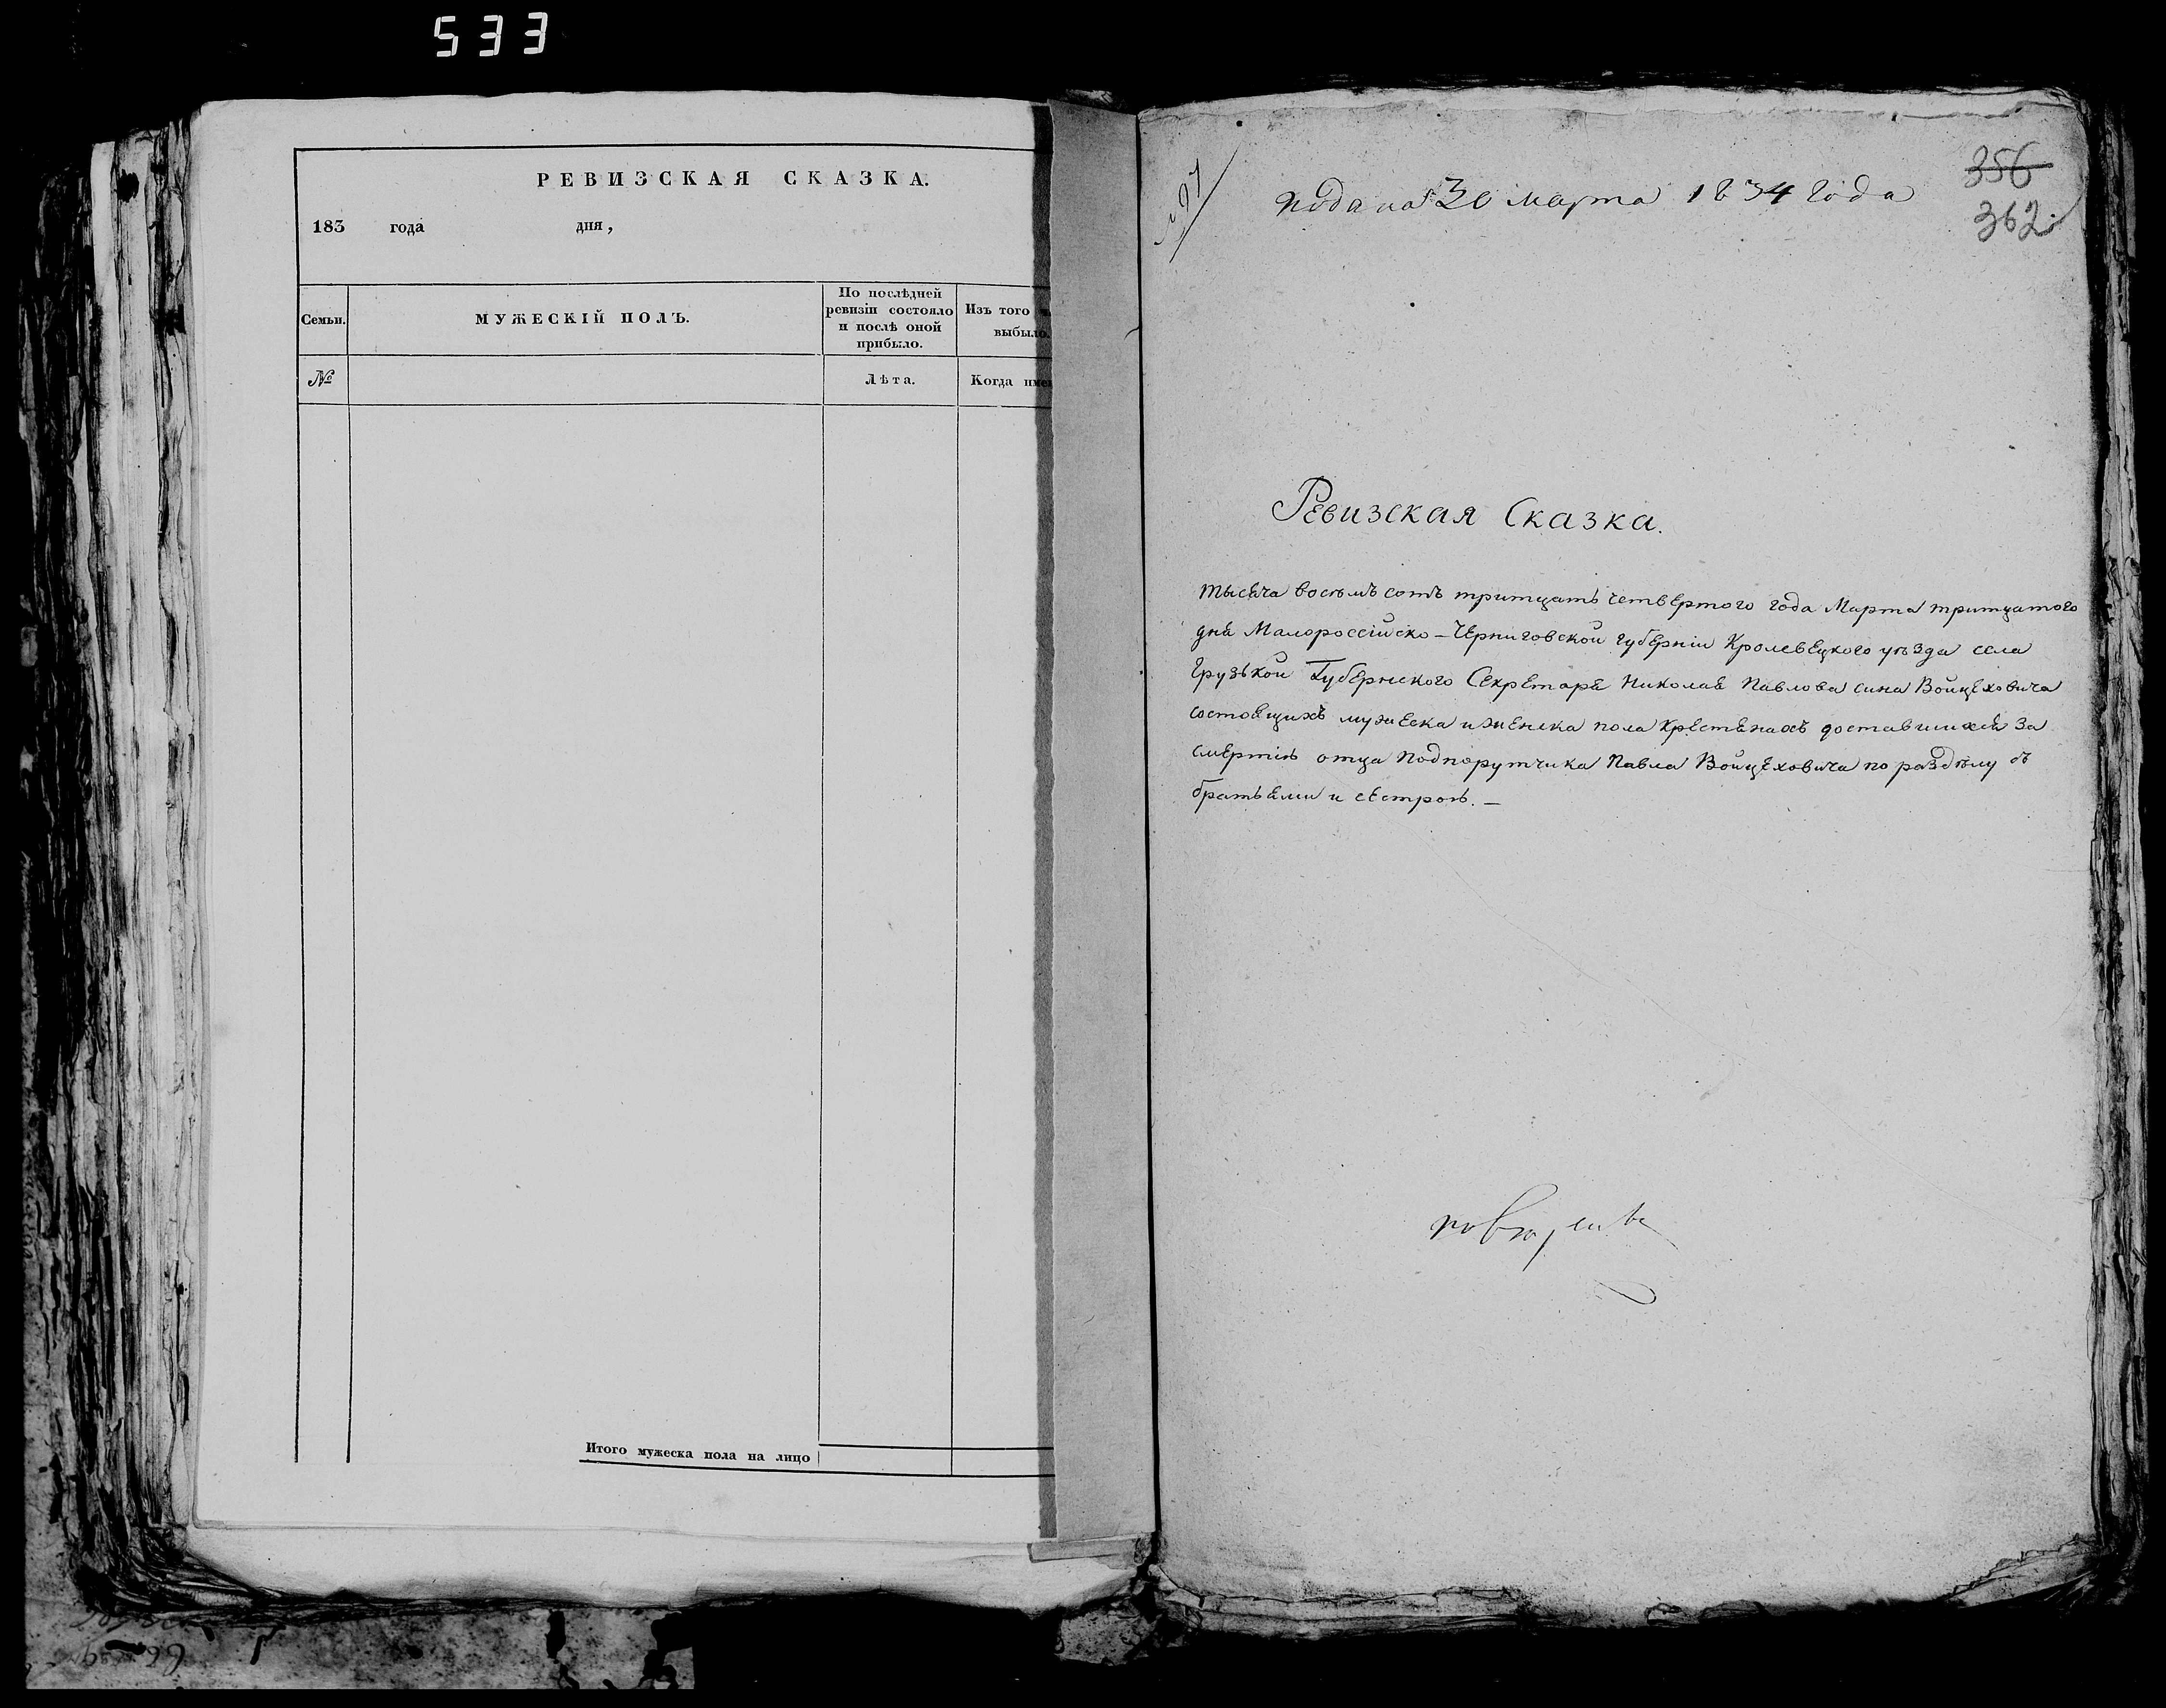 533
РЕВИЗСКАЯ СКАЗКА.
183 года дня,
Семьи.
МУЖЕСКІЙ ПОЛЪ.
По послѣдней
ревизіи состояло
и послѣ оной
прибыло.
Изъ того
выбыло.
№
Лѣта.
Когда име
Итого мужеска пола на лицо
№ 91
подана 30 марта 1834 года
356
362.
Ревизская Сказка.
тысяча восѣмъ сотъ тритцать четвертого года Марта тритцатого
дня Малороссійско-Черниговской губерніи Кролевецкого уѣзда села
Грузкой Губернского Секретаря Николая Павлова сина Войцеховича
состоящихъ мужеска и женска пола Крестянахъ доставшихся за
смертію отца подпорутчика Павла Войцеховича по раздѣлу съ
братьями и сестрою. —